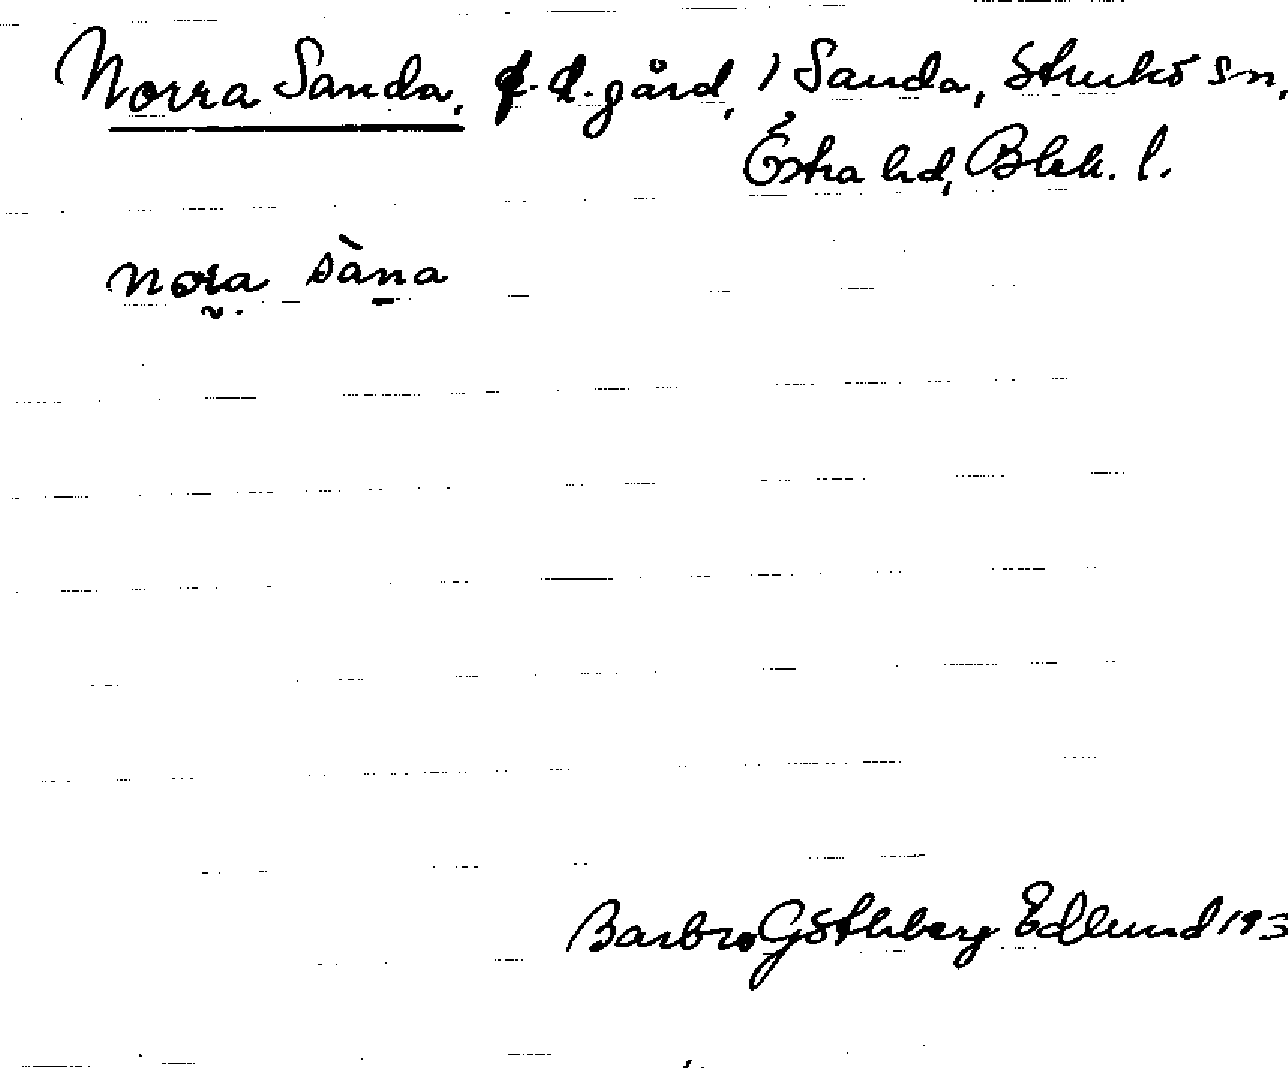 Norra Sanda, f.d. gård, i Sanda, Sturkö sn,
Östra hd, Blek. l.
nora sàna
Barbro Götheberg Edlund 193